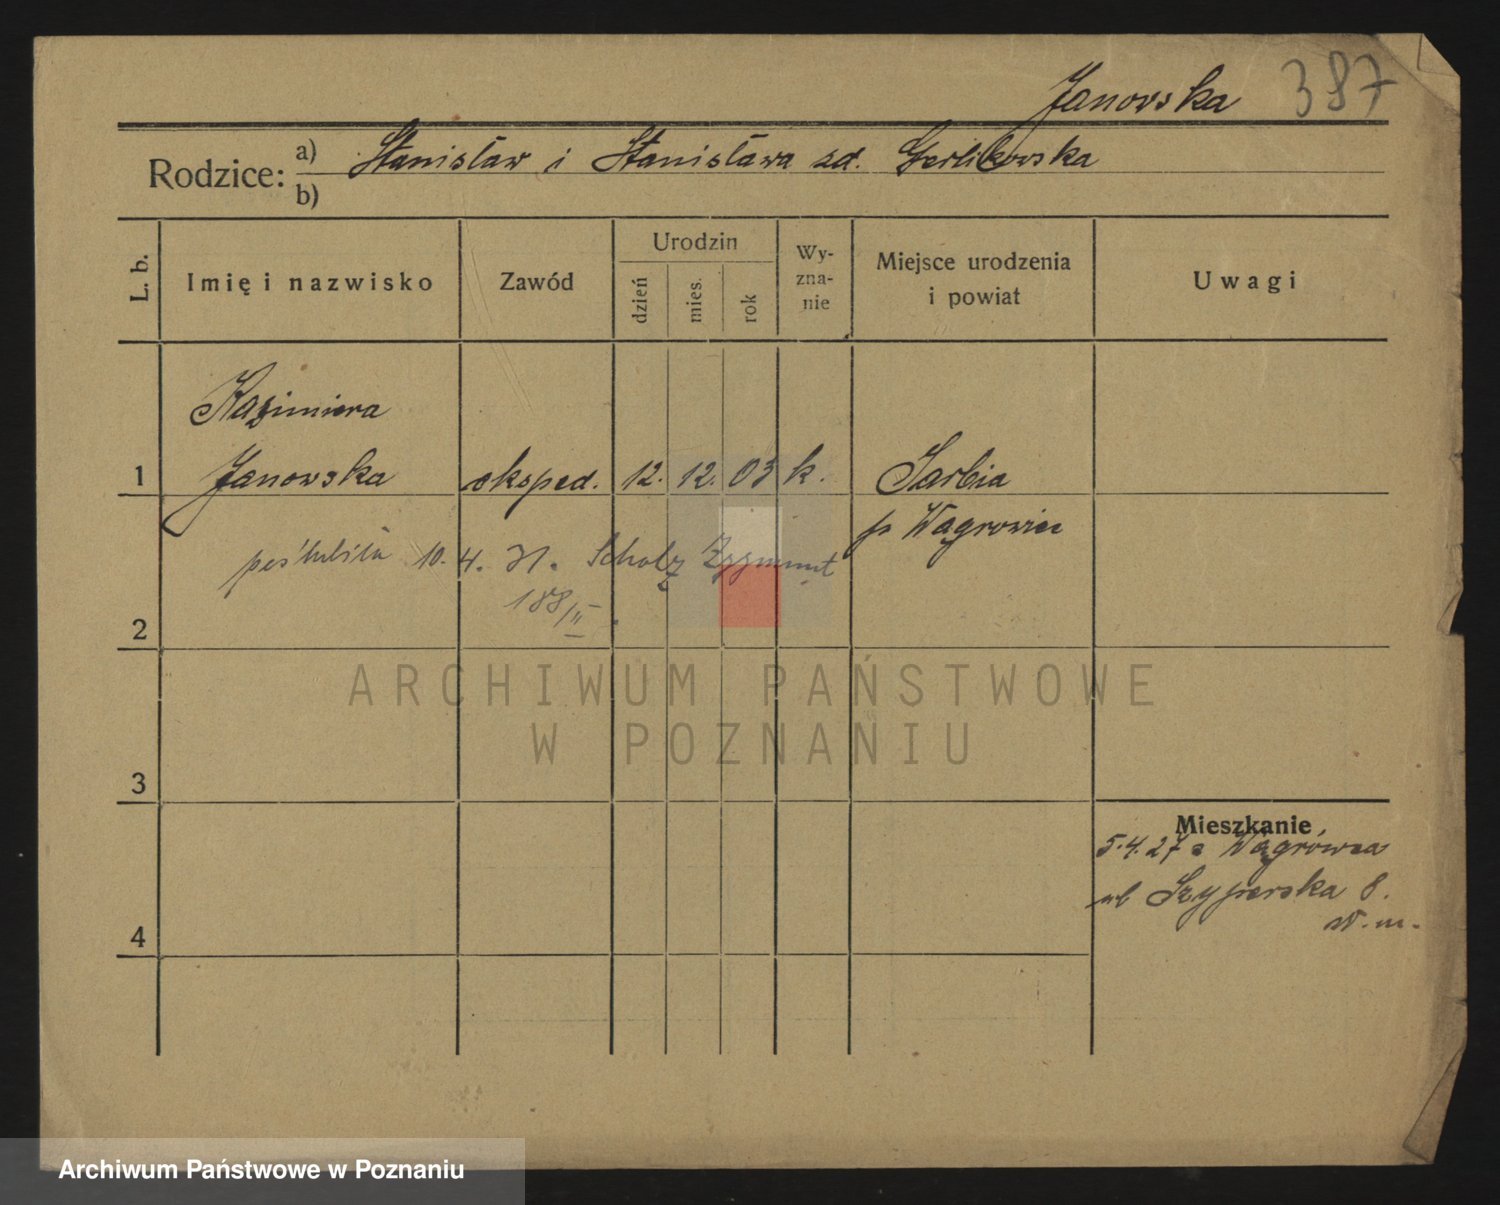 Janowska 387
Rodzice: a) Stanisław i Stanisława zd. Gerlikowska
b)
L. b.
Imię i nazwisko
Zawód
Urodzin
dzień
mies.
rok
Wy-
zna-
nie
Miejsce urodzenia
i powiat
Uwagi
Kazimiera
1 Janowska eksped. 12. 12. 03 k. Sarbia
p Wągrowiec
poślubiła 10. 4. 31. Scholz Zygmunt
188/II
2
ARCHIWUM PAŃSTWOWE
W POZNANIU
3
Mieszkanie
5.4.27 z Wągrówca
ul Szyperska 8.
w. m.
4
Archiwum Państwowe w Poznaniu